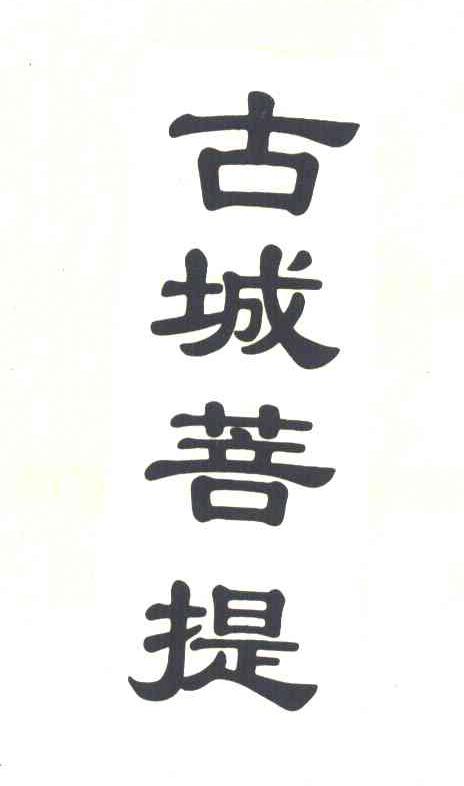 古城菩提